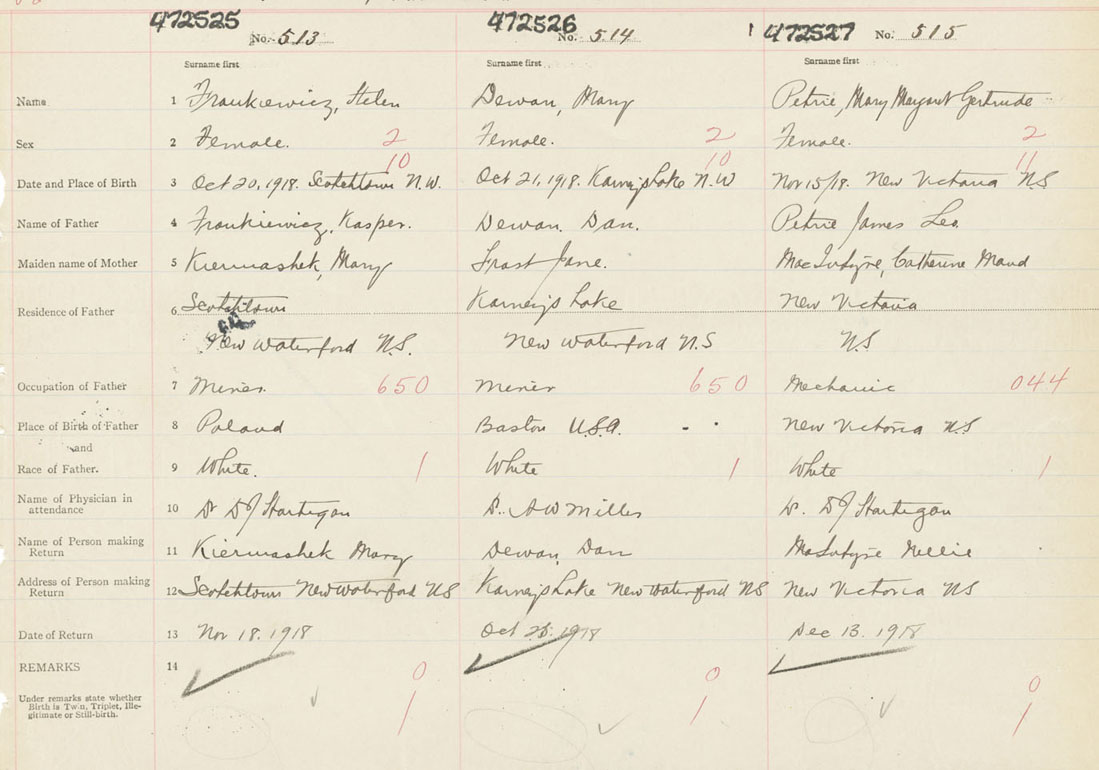 472525 No. 513 472526 No. 514 472527 No. 515
Surname first Surname first Surname first
Name 1 Frankiewicz, Helen Dewan, Mary Petrie, Mary Margaret Gertrude
Sex 2 Female. 2 Female. 2 Female. 2
10 10 11
Date and Place of Birth 3 Oct 20, 1918. Scotchtown N.W. Oct 21, 1918. Karneys Lake N.W Nov 15/18. New Victoria N.S
Name of Father 4 Frankiewicz, Kasper. Dewan, Dan. Petrie James Leo.
Maiden name of Mother 5 Kiermashek, Mary Frast Jane. MacIntyre, Catherine Maud
Residence of Father 6 Scotchtown Karneys Lake New Victoria
New Waterford N.S. New Waterford N.S N.S
Occupation of Father 7 Miner. 650 Miner 650 Mechanic 044
Place of Birth of Father 8 Poland Baston U.S.A. New Victoria N.S
and
Race of Father. 9 White. 1 White 1 White 1
Name of Physician in
attendance 10 Dr DJ Hartigan D. A W Miller Dr. DJ Hartigan
Name of Person making
Return 11 Kiermashek Mary Dewan, Dan MacIntyre Nellie
Address of Person making
Return 12 Scotchtown New Waterford N.S Karneys Lake New Waterford N.S New Victoria N.S
Date of Return 13 Nov 18. 1918 Oct 1918 Dec 13. 1918
REMARKS 14 0 0 0
Under remarks state whether
Birth is Twin, Triplet, Ille-
gitimate or Still-birth. 1 1 1